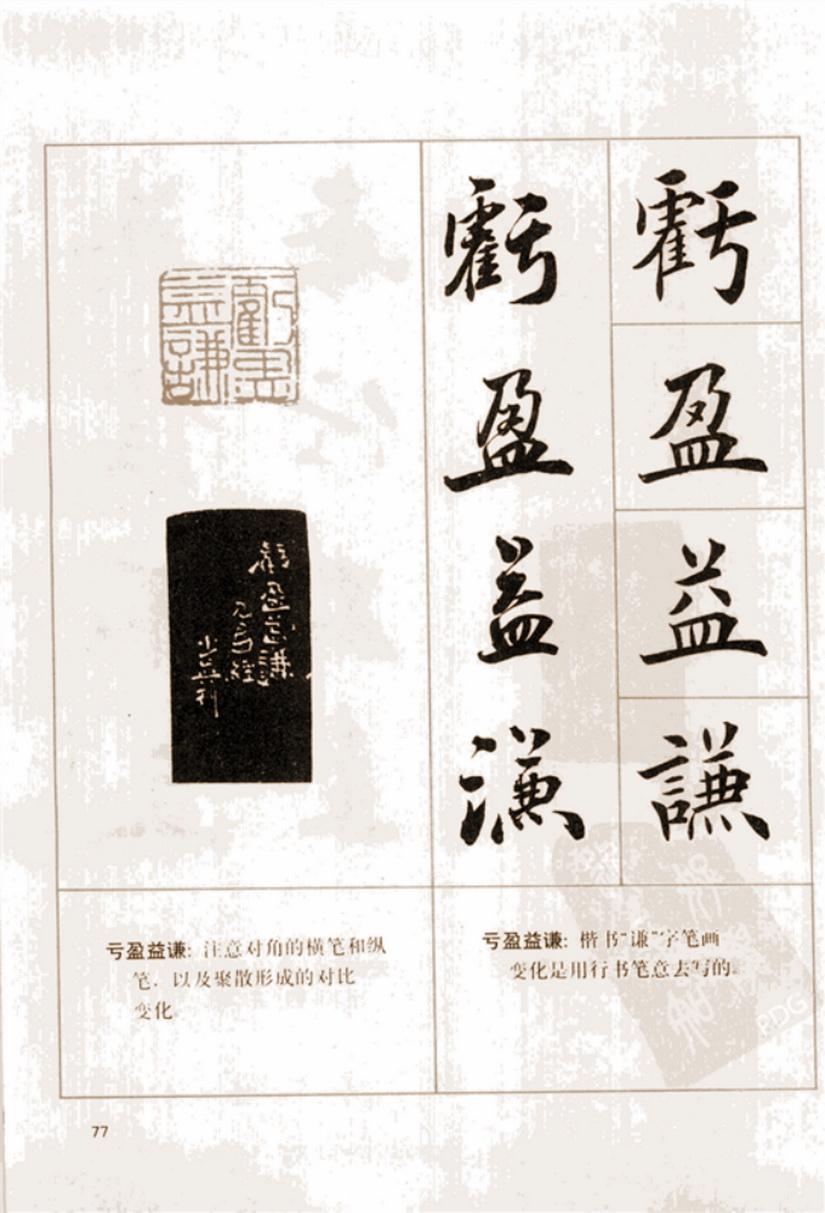 虧盈益謙
虧盈益謙
虧盈
益謙
虧盈益謙
亏盈益谦: 注意对角的横笔和纵
笔，以及聚散形成的对比
变化
亏盈益谦: 楷书“谦”字笔画
变化是用行书笔意去写的。
PDG
77